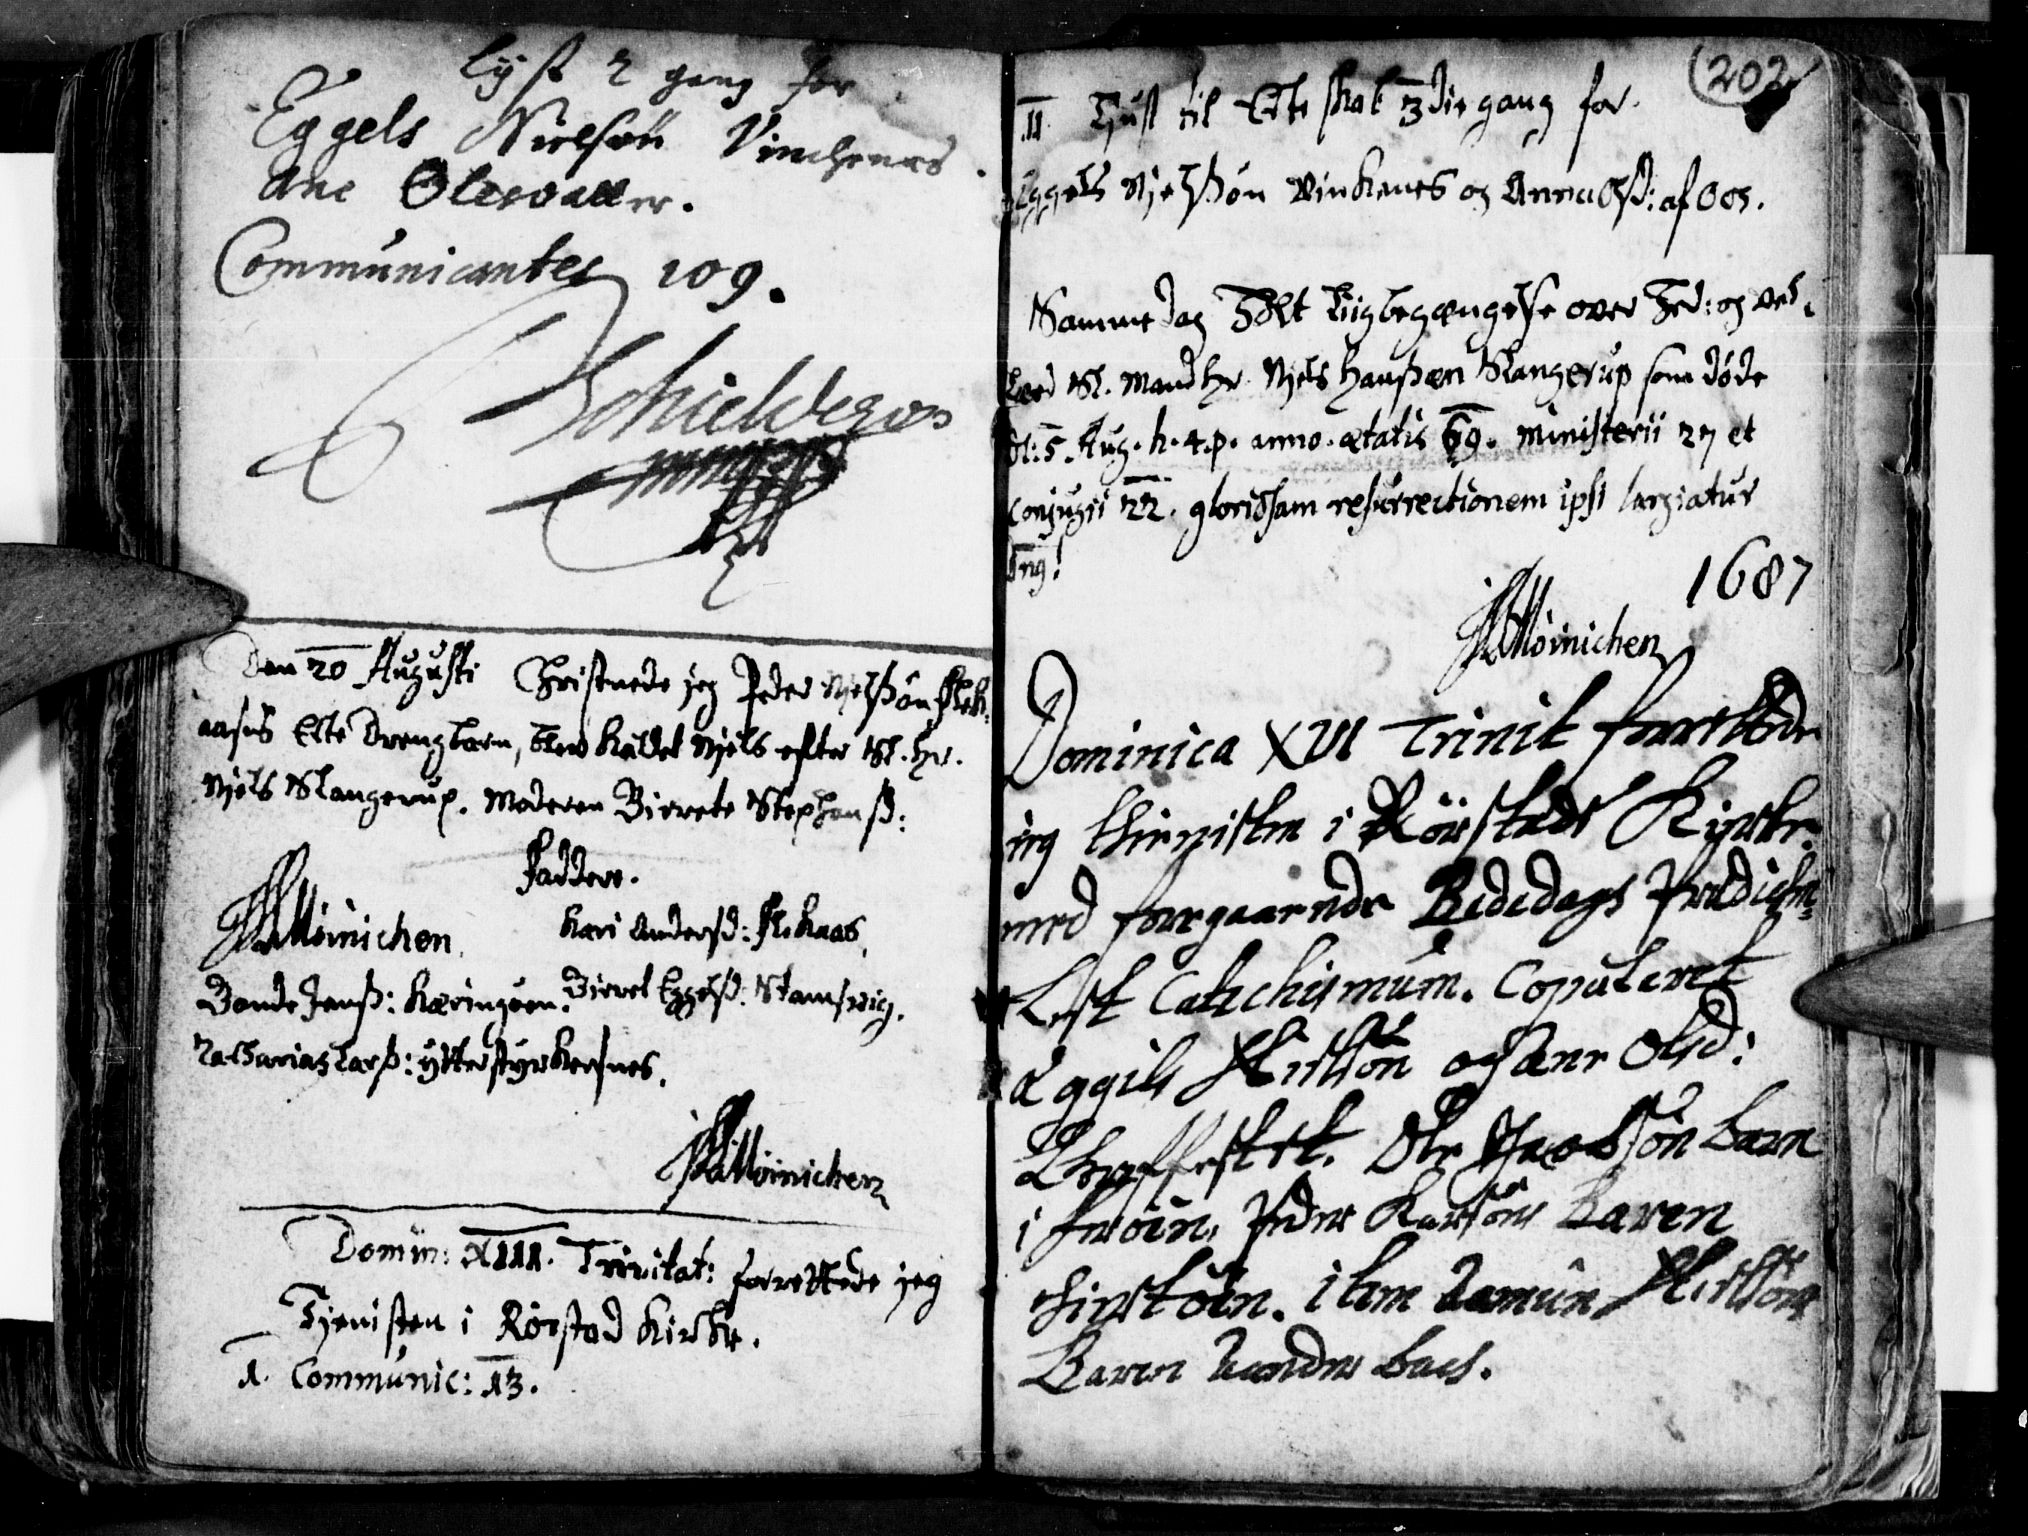 Lyst 2 gang for
Eggels Nielsøn Vinchenes
Ane Olesdatter.
Communicantes 109.
Schielderup
Den 20 Augusti Christnede jeg Peder Njelssøn Flek-
aasis Ecte Drengbarn, blev kaldet Njels efter Sl. Hr.
Njels Slangerup. Moderen Birrete Stephensd:
Faddere.
Möinichen. Kari Andersd: Flekaas.
Bonde Jenss: Kæringøen. Birret Eggelsd: Stamsvig.
Zacharias Larss: ytterstyrkesnes.
Möinichen
Domin: XIII. Trinitat: forrettede jeg
Tjenisten i Rørstad Kirke.
1. Communic: 13.
202
II. Lyst til Ecteskab 3die gang for
Eggels Njelssøn Vinkenes og Anna Olsd: af
Samme dag Holt Liigbegængelse over Hed: og vel-
Lærd Sl. Mand Hr. Njels Hanssen Slangerup som døde
d: 5. Aug. h. 4. p. anno. ætatis 69. ministerii 27 et
Conjugii 22. gloriosam resurrectionem ipsi largiatur
1687
Möinichen
Dominica XVI Trinit forrettede
ieg thienisten i Rörstads Kyrke
med foregaaende Bededags Prædichen
Lest Catechismum. Copuleret
Eggils Nielssön og Ane Olsd:
Ole Jacobsön barn
i Peder Larsöns Baren
item Nielssöns
Baren